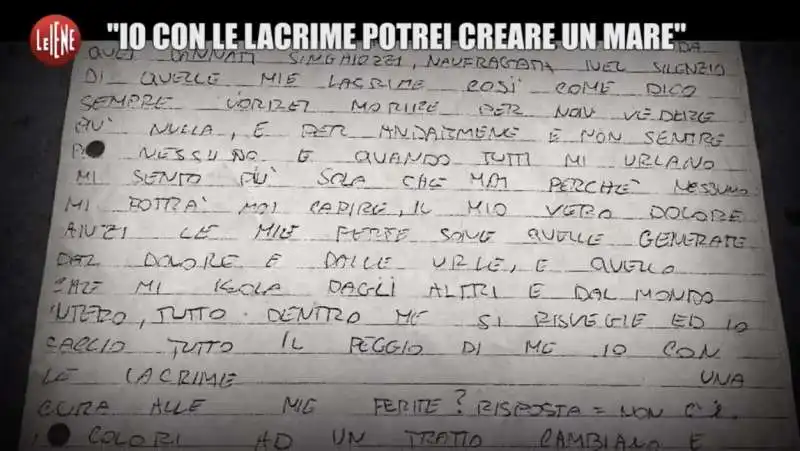 LE IENE
"IO CON LE LACRIME POTREI CREARE UN MARE"
DA
QUEI DANNATI SINGHIOZZI, NAUFRAGATA NEL SILENZIO
DI QUELLE MIE LACRIME COSÌ COME DICO
SEMPRE VORREI MORIRE PER NON VEDERE
PIÙ NULLA, E PER ANDARMENE E NON SENTIRE
NESSUNO E QUANDO TUTTI MI URLANO
MI SENTO PIÙ SOLA CHE MAI PERCHÈ NESSUNO
MI POTRÀ MAI CAPIRE, IL MIO VERO DOLORE
ANZI LE MIE FERITE SONO QUELLE GENERATE
DAL DOLORE E DALLE URLE, E QUELLO
CHE MI ISOLA DAGLI ALTRI E DAL MONDO
INTERO, TUTTO DENTRO ME SI RISVEGLIE ED IO
CACCIO TUTTO IL PEGGIO DI ME IO CON
LE LACRIME UNA
CURA ALLE MIE FERITE? RISPOSTA = NON C'È.
COLORI AD UN TRATTO CAMBIANO E